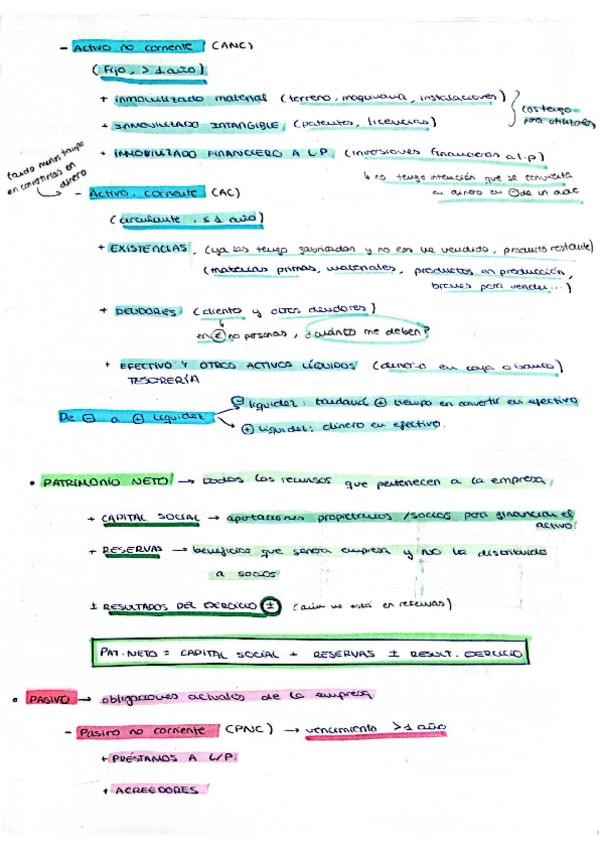 - Activo no corriente (ANC)
(Fijo, > 1 año)
+ inmovilizado material (terreno, maquinaria, instalaciones)
+ INMOVILIZADO INTANGIBLE (patentes, licencias)
los tengo para utilizarlos
+ INMOVILIZADO FINANCIERO A L.P (inversiones financieras a l.p)
↳ no tengo intención que se convierta
en dinero en ⊖ de un año
tardo menos tiempo en convertirlos en dinero
- Activo corriente (AC)
(circulante, ≤ 1 año)
+ EXISTENCIAS, (ya las tengo fabricadas y no las he vendido, producto restante)
(materias primas, materiales, productos en producción,
bienes para vender...)
+ DEUDORES (cliento y otros deudores)
en € no personas, ¿cuánto me deben?
+ EFECTIVO Y OTROS ACTIVOS LÍQUIDOS (dinero en caja o banco)
TESORERÍA
⊖ liquidez: tardaré ⊕ tiempo en convertir en efectivo
De ⊖ a ⊕ liquidez
⊕ liquidez: dinero en efectivo.
• PATRIMONIO NETO → todos los recursos que pertenecen a la empresa
+ CAPITAL SOCIAL → aportaciones propietarios /socios para financiar el
activo
+ RESERVAS → beneficios que genera empresa y NO ha distribuido
a socios
± RESULTADOS DEL EJERCICIO (±) (aún no está en reservas)
PAT. NETO = CAPITAL SOCIAL + RESERVAS ± RESULT. EJERCICIO
• PASIVO → obligaciones actuales de la empresa
- Pasivo no corriente (PNC) → vencimiento > 1 año
+ PRÉSTAMOS A L/P
+ ACREEDORES